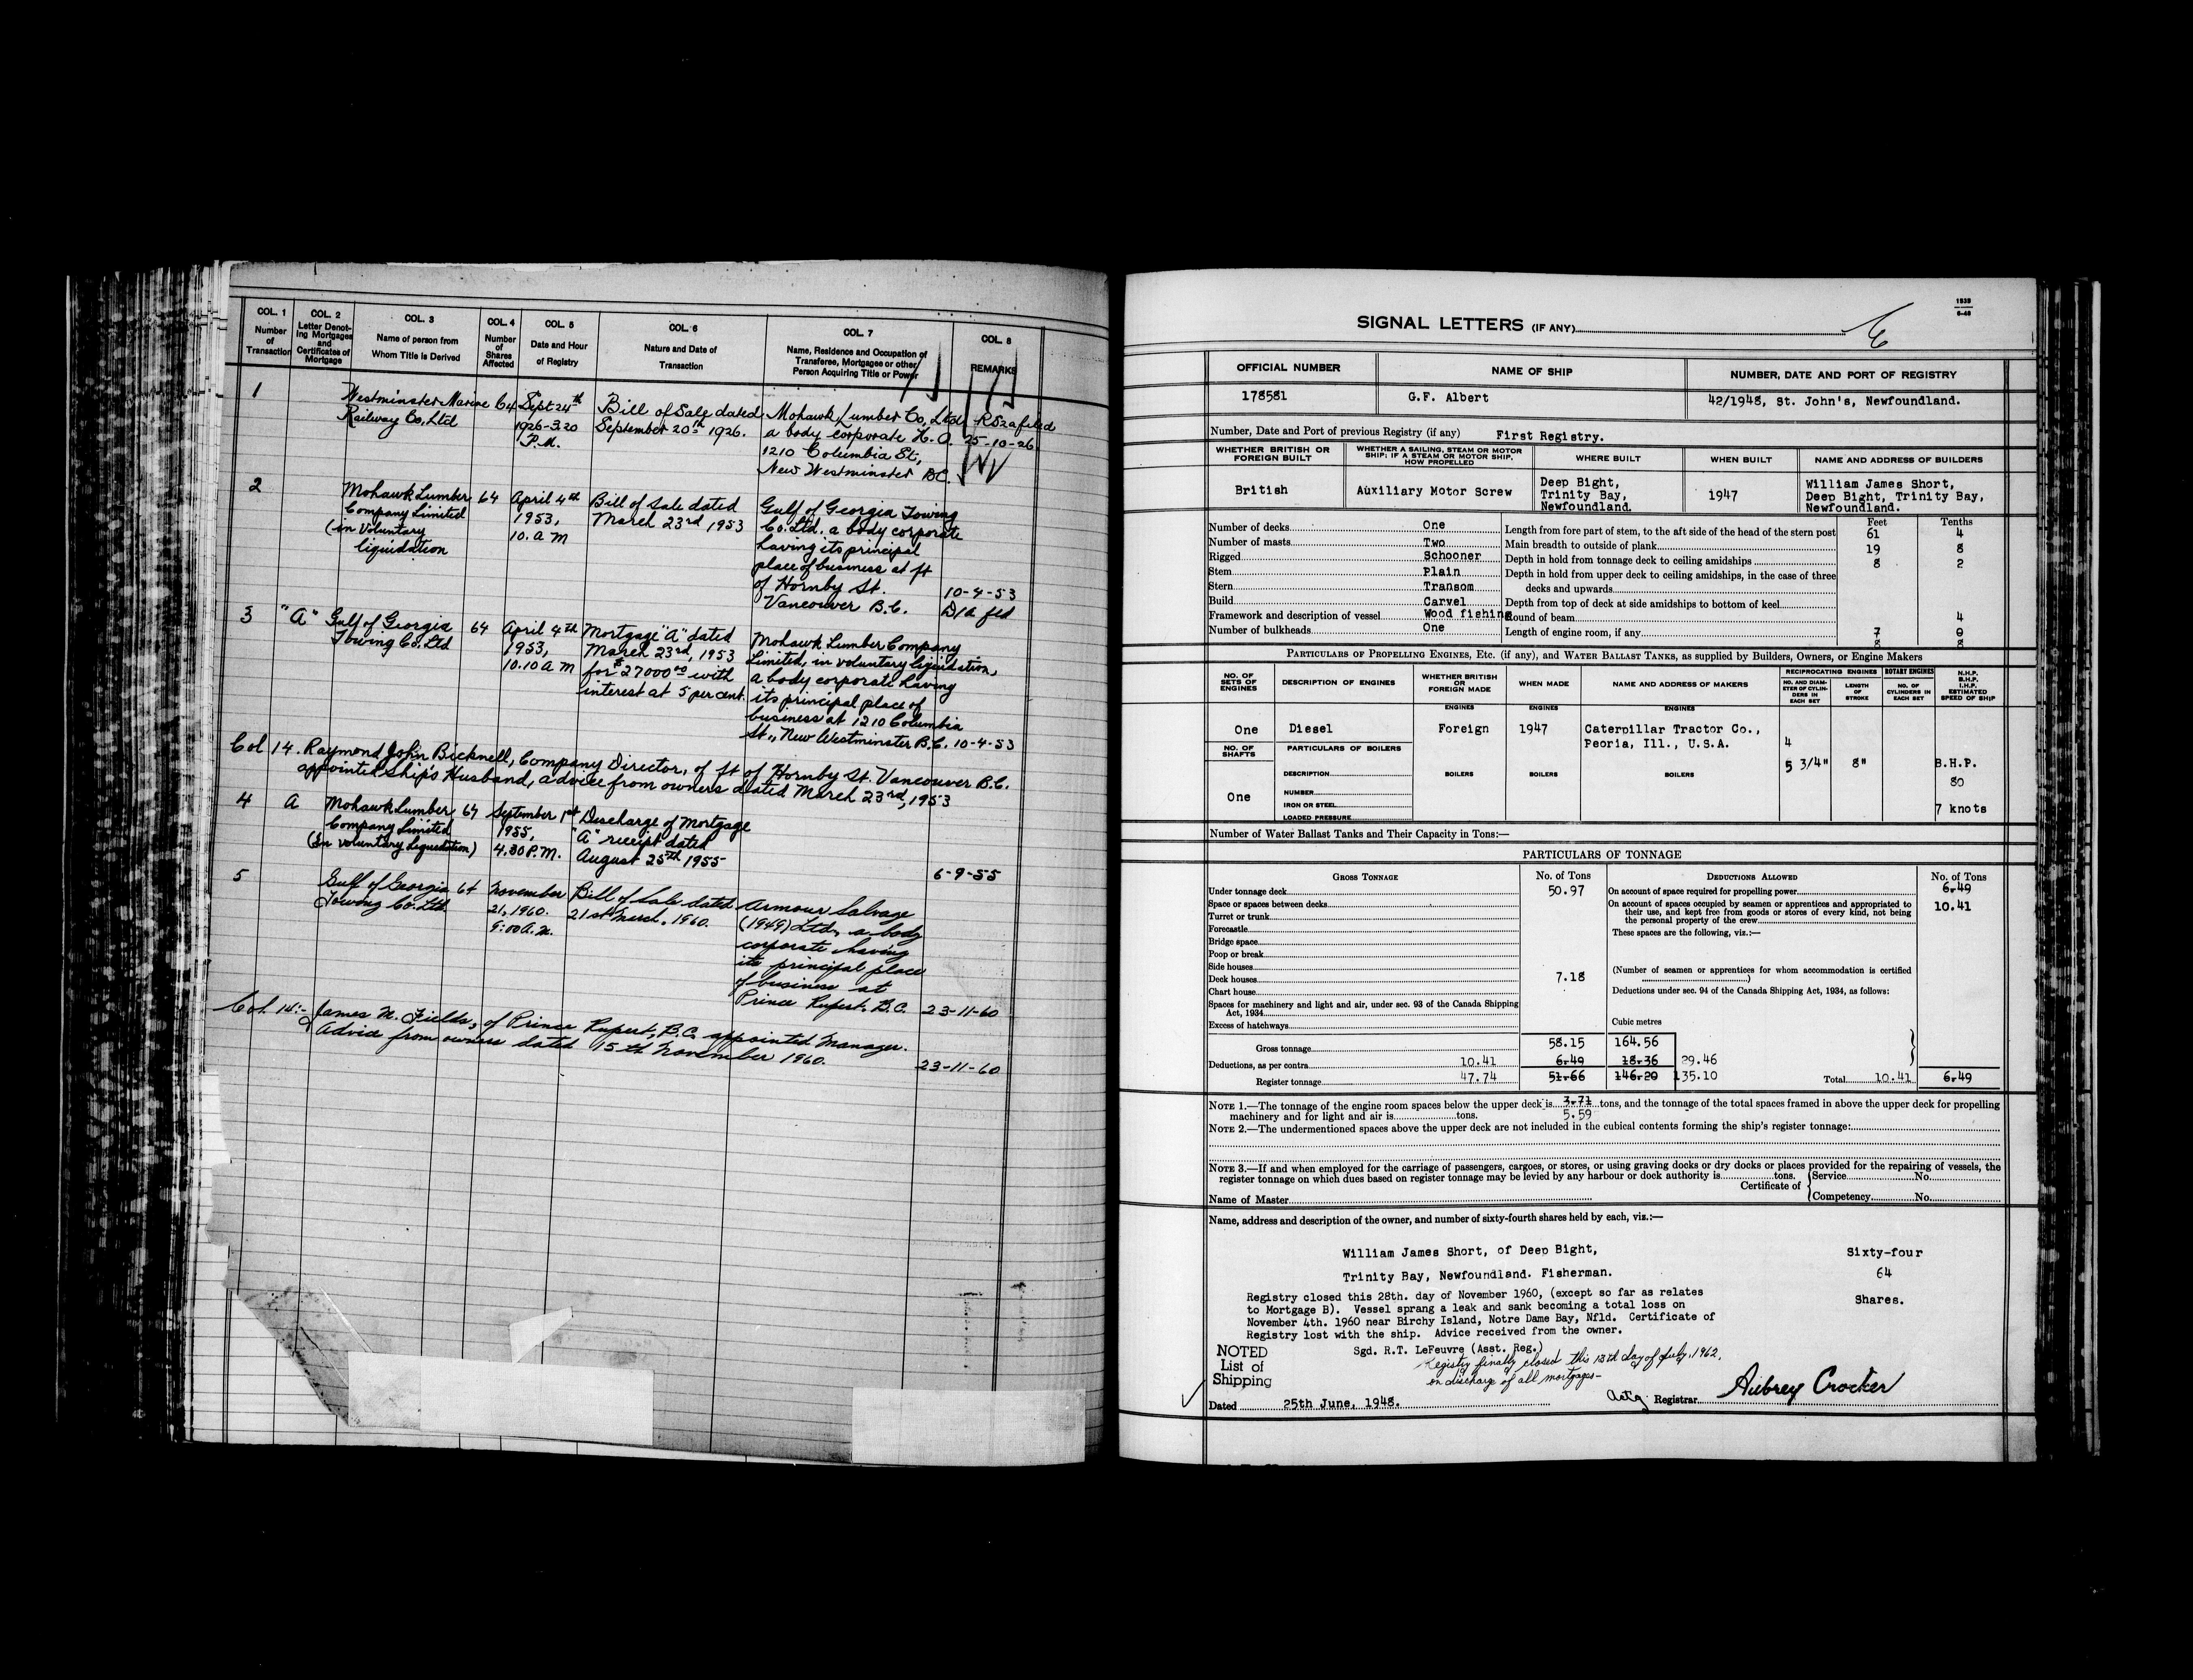 COL. 1 COL. 2 COL. 3 COL. 4 COL. 5 COL. 6 COL. 7 COL. 8
Number of Transaction
Letter Denoting Mortgages and Certificates of Mortgage
Name of person from Whom Title is Derived
Number of Shares Affected
Date and Hour of Registry
Nature and Date of Transaction
Name, Residence and Occupation of Transferee, Mortgagee or other Person Acquiring Title or Power
REMARKS
1
Westminster Marine
Railway Co, Ltd
64
Sept 24th
1926-3.20
P.M.
Bill of Sale dated
September 20th 1926.
Mohawk Lumber Co, Ltd
a body corporate H.O.
1210 Columbia St;
New Westminster BC.
25-10-26
2
Mohawk Lumber
Company Limited
(in Voluntary
liquidation
64
April 4th
1953,
10. A M
Bill of Sale dated
March 23rd 1953
Gulf of Georgia Towing
Co. Ltd. a body corporate
having its principal
place of business at ft
of Hornby St.
Vancouver B.C.
10-4-53
D/A fld
3
"A"
Gulf of Georgia
Towing Co. Ltd
64
April 4th
1953,
10.10 A M
Mortgage "A" dated
March 23rd, 1953
for $27000.00 with
interest at 5 per cent.
Mohawk Lumber Company
Limited, in voluntary liquidation,
a body corporate having
its principal place of
business at 1210 Columbia
St., New Westminster B.C.
10-4-53
Col 14. Raymond John Bicknell, Company Director, of ft of Hornby St. Vancouver B.C.
appointed Ship's Husband, advice from owners dated March 23rd, 1953
4
A
Mohawk Lumber
Company Limited
(In voluntary Liquidation)
64
September 1st
1955,
4.30 P.M.
Discharge of Mortgage
"A" receipt dated
August 25th 1955
6-9-55
5
Gulf of Georgia
Towing Co. Ltd.
64
November
21, 1960.
9:00 A.M.
Bill of Sale dated
21st March, 1960.
Armour Salvage
(1949) Ltd, a body
corporate having
its principal place
of business at
Prince Rupert, B.C.
23-11-60
Col. 14:- James M. Fields, of Prince Rupert, B.C. appointed Manager.
Advice from owners dated 15th November 1960.
23-11-60
1939
6-46
SIGNAL LETTERS (IF ANY)
OFFICIAL NUMBER
NAME OF SHIP
NUMBER, DATE AND PORT OF REGISTRY
178581
G.F. Albert
42/1948, St. John's, Newfoundland.
Number, Date and Port of previous Registry (if any) First Registry.
WHETHER BRITISH OR FOREIGN BUILT
WHETHER A SAILING, STEAM OR MOTOR SHIP; IF A STEAM OR MOTOR SHIP, HOW PROPELLED
WHERE BUILT
WHEN BUILT
NAME AND ADDRESS OF BUILDERS
British
Auxiliary Motor Screw
Deep Bight,
Trinity Bay,
Newfoundland.
1947
William James Short,
Deep Bight, Trinity Bay,
Newfoundland.
Feet Tenths
Number of decks One
Number of masts Two
Rigged Schooner
Stem Plain
Stern Transom
Build Carvel
Framework and description of vessel Wood fishing
Number of bulkheads One
Length from fore part of stem, to the aft side of the head of the stern post 61 4
Main breadth to outside of plank 19 8
Depth in hold from tonnage deck to ceiling amidships 8 2
Depth in hold from upper deck to ceiling amidships, in the case of three
decks and upwards
Depth from top of deck at side amidships to bottom of keel
Round of beam 4
Length of engine room, if any 7 0
8 8
PARTICULARS OF PROPELLING ENGINES, Etc. (if any), and WATER BALLAST TANKS, as supplied by Builders, Owners, or Engine Makers
NO. OF SETS OF ENGINES
DESCRIPTION OF ENGINES
WHETHER BRITISH OR FOREIGN MADE
WHEN MADE
NAME AND ADDRESS OF MAKERS
RECIPROCATING ENGINES
ROTARY ENGINES
NO. AND DIAMETER OF CYLINDERS IN EACH SET
LENGTH OF STROKE
NO. OF CYLINDERS IN EACH SET
N.H.P.
B.H.P.
I.H.P.
ESTIMATED SPEED OF SHIP
ENGINES ENGINES ENGINES
One
Diesel
Foreign
1947
Caterpillar Tractor Co.,
Peoria, Ill., U.S.A.
4
5 3/4"
8"
B.H.P.
80
7 knots
NO. OF SHAFTS
PARTICULARS OF BOILERS
DESCRIPTION
BOILERS BOILERS BOILERS
One
NUMBER
IRON OR STEEL
LOADED PRESSURE
Number of Water Ballast Tanks and Their Capacity in Tons:—
PARTICULARS OF TONNAGE
GROSS TONNAGE
No. of Tons
DEDUCTIONS ALLOWED
No. of Tons
Under tonnage deck 50.97
Space or spaces between decks
Turret or trunk
Forecastle
Bridge space
Poop or break
Side houses
Deck houses 7.18
Chart house
Spaces for machinery and light and air, under sec. 93 of the Canada Shipping
Act, 1934
Excess of hatchways
Cubic metres
Gross tonnage 58.15 164.56
Deductions, as per contra 10.41 6.49 18.36 29.46
Register tonnage 47.74 51.66 146.20 135.10
On account of space required for propelling power 6.49
On account of spaces occupied by seamen or apprentices and appropriated to 10.41
their use, and kept free from goods or stores of every kind, not being
the personal property of the crew
These spaces are the following, viz.:—
(Number of seamen or apprentices for whom accommodation is certified
)
Deductions under sec. 94 of the Canada Shipping Act, 1934, as follows:
Total 10.41 6.49
NOTE 1.—The tonnage of the engine room spaces below the upper deck is 3.71 tons, and the tonnage of the total spaces framed in above the upper deck for propelling
machinery and for light and air is tons. 5.59
NOTE 2.—The undermentioned spaces above the upper deck are not included in the cubical contents forming the ship's register tonnage:
NOTE 3.—If and when employed for the carriage of passengers, cargoes, or stores, or using graving docks or dry docks or places provided for the repairing of vessels, the
register tonnage on which dues based on register tonnage may be levied by any harbour or dock authority is tons.
Name of Master
Certificate of
Service No.
Competency No.
Name, address and description of the owner, and number of sixty-fourth shares held by each, viz.:—
William James Short, of Deep Bight,
Trinity Bay, Newfoundland. Fisherman.
Sixty-four
64
Shares.
Registry closed this 28th. day of November 1960, (except so far as relates
to Mortgage B). Vessel sprang a leak and sank becoming a total loss on
November 4th. 1960 near Birchy Island, Notre Dame Bay, Nfld. Certificate of
Registry lost with the ship. Advice received from the owner.
Sgd. R.T. LeFeuvre (Asst. Reg.)
NOTED
List of
Shipping
Registry finally closed this 13th day of July, 1962,
on discharge of all mortgages—
Dated 25th June, 1948.
Actg Registrar Aubrey Crocker